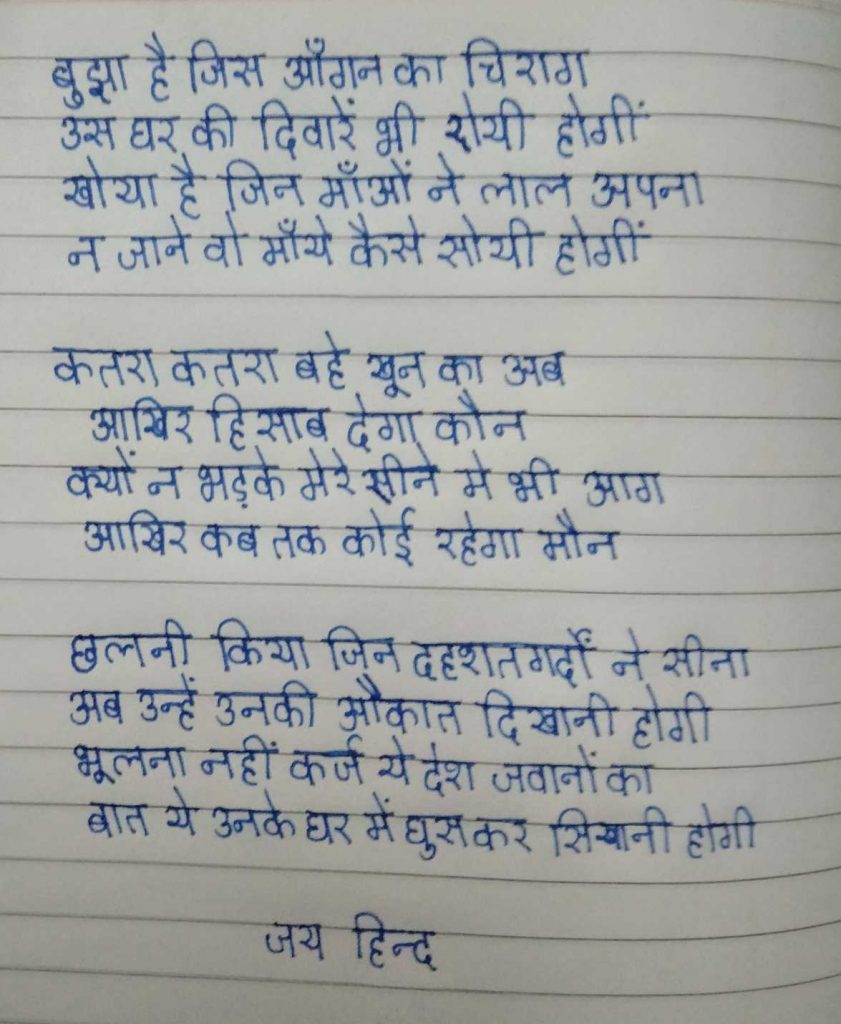 बुझा है जिस आँगन का चिराग
उस घर की दिवारें भी रोयी होगीं
खोया है जिन माँओं ने लाल अपना
न जाने वो माँये कैसे सोयी होगीं
कतरा कतरा बहे खून का अब
आखिर हिसाब देगा कौन
क्यों न भड़के मेरे सीने मे भी आग
आखिर कब तक कोई रहेगा मौन
छलनी किया जिन दहशतगर्दों ने सीना
अब उन्हें उनकी औकात दिखानी होगी
भूलना नहीं कर्ज ये देश जवानों का
बात ये उनके घर में घुसकर सिखानी होगी
जय हिन्द